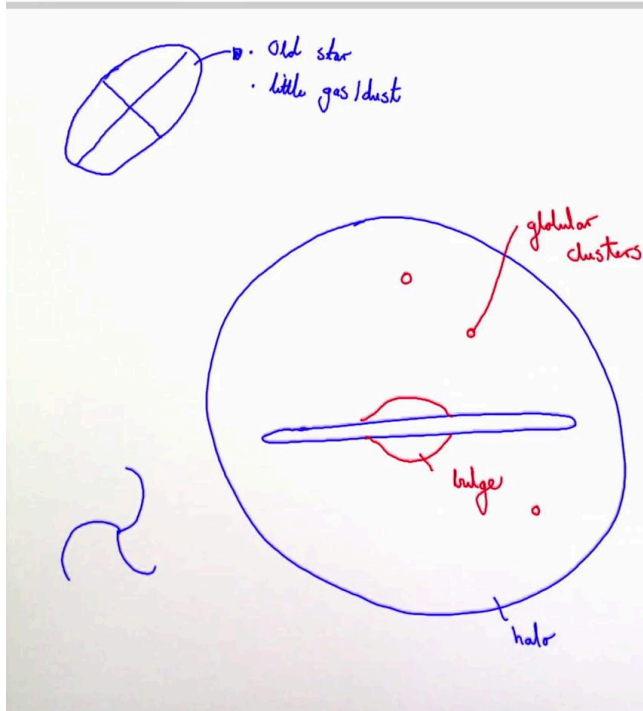 · Old star
· little gas/dust
globular
clusters
bulge
halo